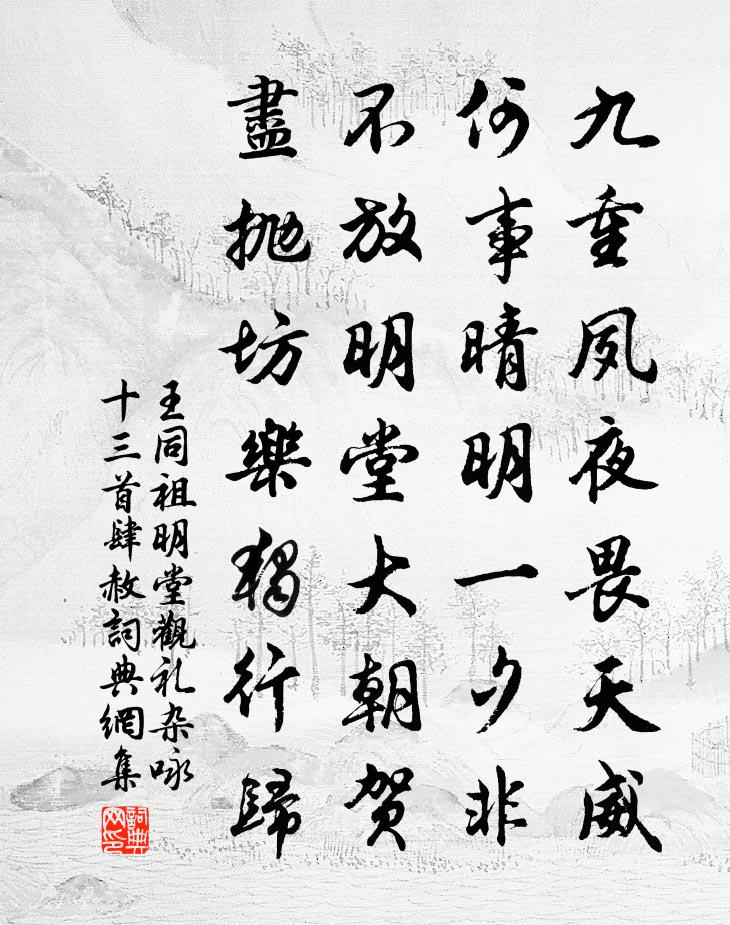 九重夙夜畏天威
何事晴明一夕非
不放明堂大朝贺
盡抛坊樂獨行歸
王同祖明堂觀礼杂咏
十三首肆赦詞典網集
詞典
网印